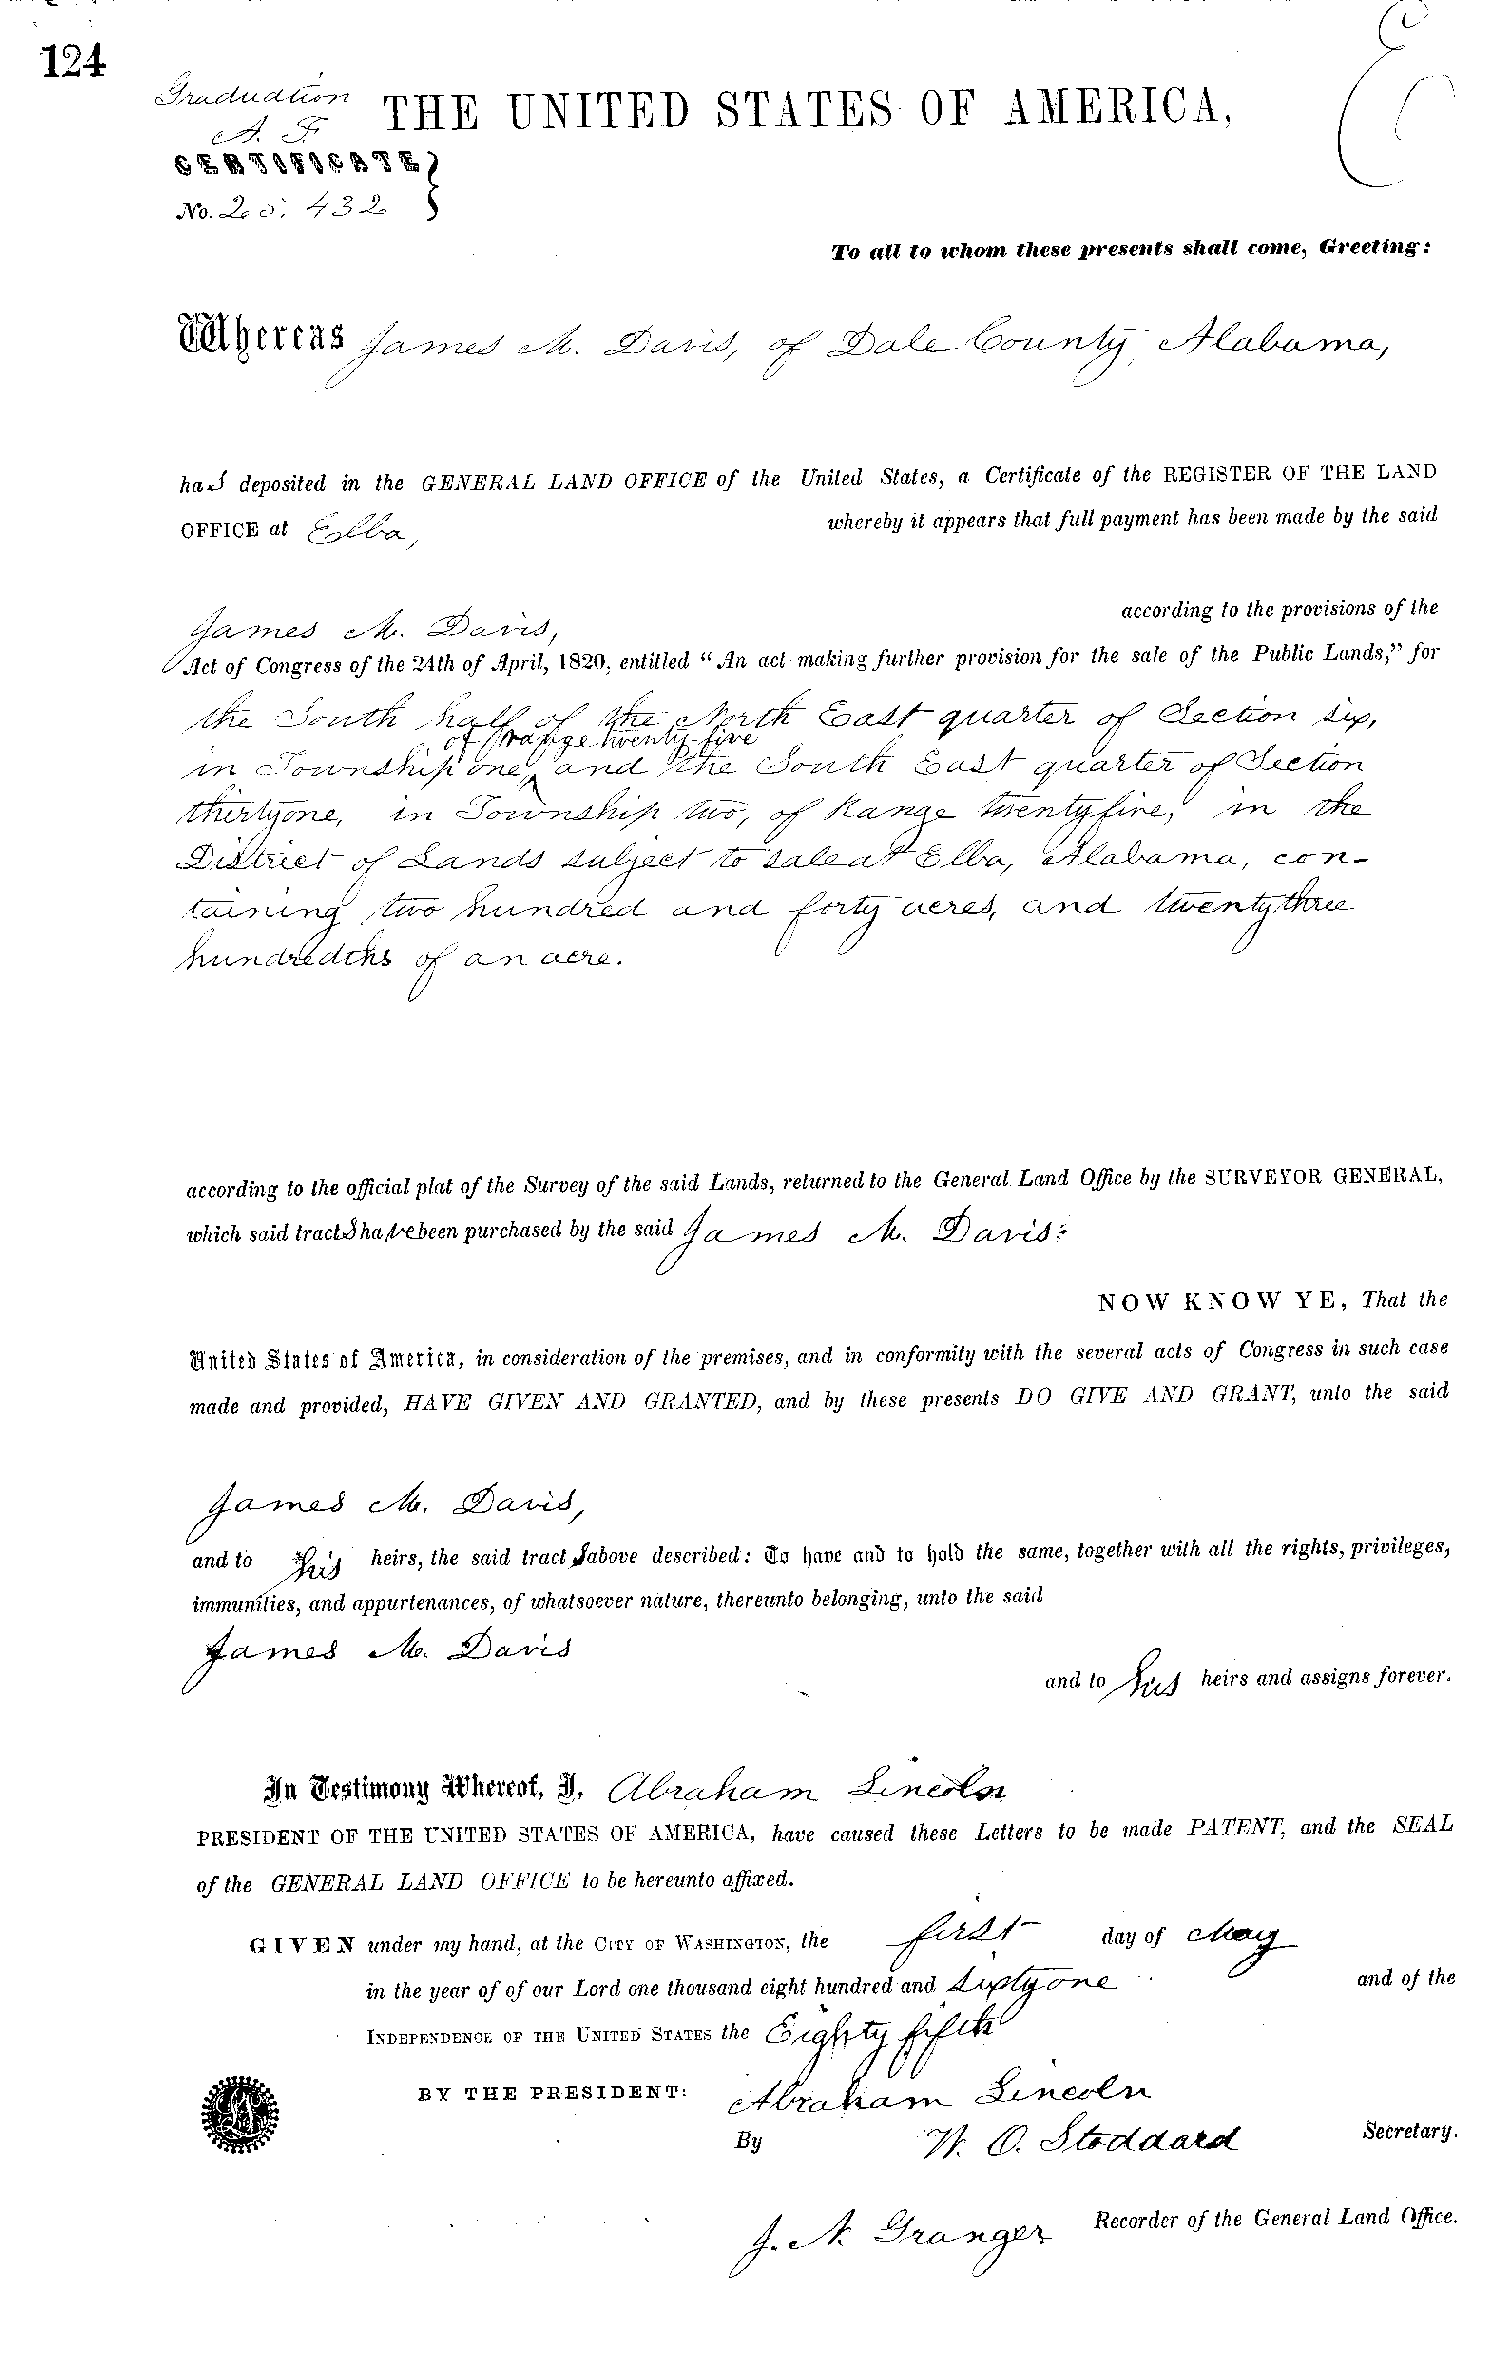 124
Graduation
A. F.
THE UNITED STATES OF AMERICA,
CERTIFICATE
No. 25.432
To all to whom these presents shall come, Greeting:
Whereas James M. Davis, of Dale County, Alabama,
has deposited in the GENERAL LAND OFFICE of the United States, a Certificate of the REGISTER OF THE LAND
OFFICE at Elba, whereby it appears that full payment has been made by the said
James M. Davis, according to the provisions of the
Act of Congress of the 24th of April, 1820, entitled “An act making further provision for the sale of the Public Lands,” for
the South half of the North East quarter of Section six,
of range twenty five
in Township one, and the South East quarter of Section
thirty one, in Township two, of Range twenty five, in the
District of Lands subject to sale at Elba, Alabama, con-
taining two hundred and forty acres, and twenty three
hundredths of an acre.
according to the official plat of the Survey of the said Lands, returned to the General Land Office by the SURVEYOR GENERAL,
which said tracts have been purchased by the said James M. Davis:
NOW KNOW YE, That the
United States of America, in consideration of the premises, and in conformity with the several acts of Congress in such case
made and provided, HAVE GIVEN AND GRANTED, and by these presents DO GIVE AND GRANT, unto the said
James M. Davis,
and to his heirs, the said tracts above described: To have and to hold the same, together with all the rights, privileges,
immunities, and appurtenances, of whatsoever nature, thereunto belonging, unto the said
James M. Davis
and to his heirs and assigns forever.
In Testimony Whereof, I, Abraham Lincoln
PRESIDENT OF THE UNITED STATES OF AMERICA, have caused these Letters to be made PATENT, and the SEAL
of the GENERAL LAND OFFICE to be hereunto affixed.
GIVEN under my hand, at the CITY OF WASHINGTON, the first day of May
in the year of of our Lord one thousand eight hundred and sixty one and of the
INDEPENDENCE OF THE UNITED STATES the Eighty fifth
BY THE PRESIDENT: Abraham Lincoln
By W. O. Stoddard Secretary.
J. N. Granger Recorder of the General Land Office.